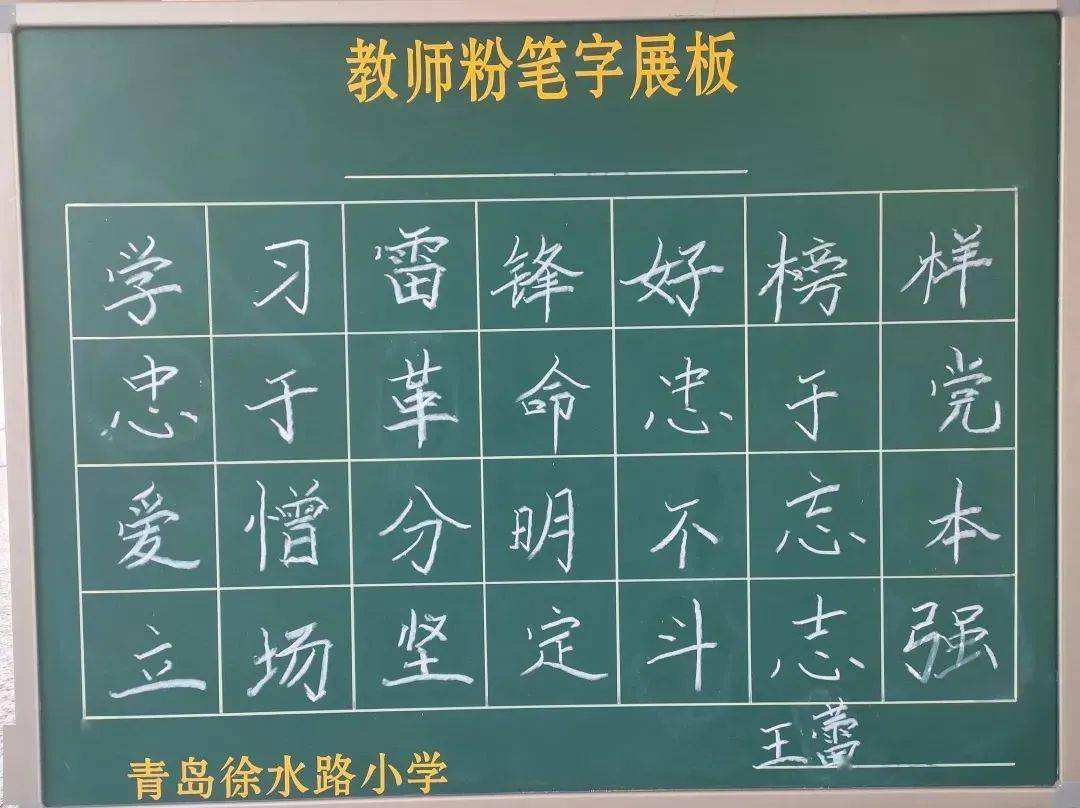 教师粉笔字展板
学习雷锋好榜样
忠于革命忠于党
爱憎分明不忘本
立场坚定斗志强
王蕾
青岛徐水路小学